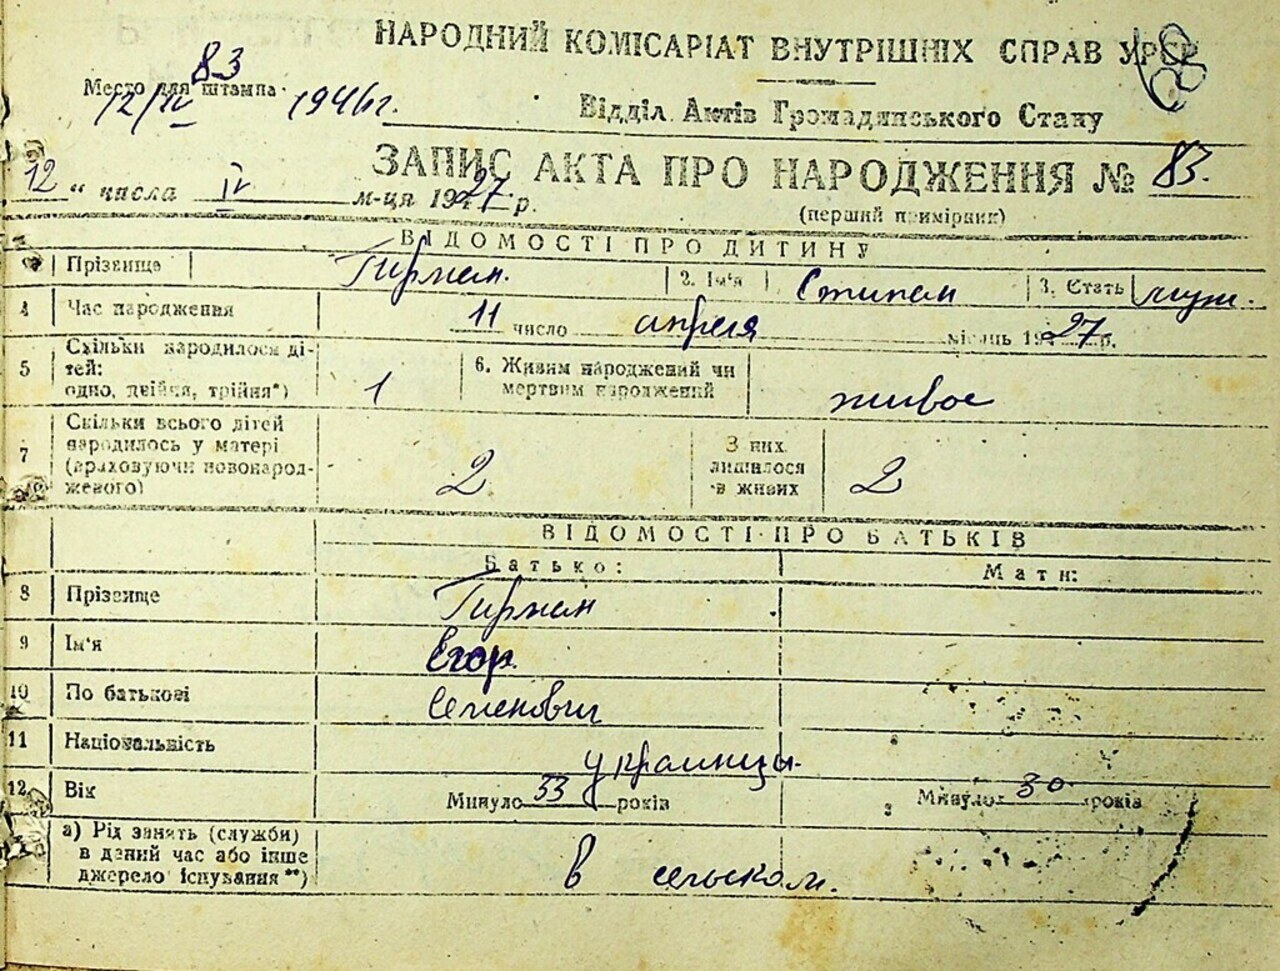 НАРОДНИЙ КОМІСАРІАТ ВНУТРІШНІХ СПРАВ УРСР
83
Место для штампа
12/IV 1946 г.
Відділ Актів Громадянського Стану
ЗАПИС АКТА ПРО НАРОДЖЕННЯ № 83.
12 " числа IV м-ця 1927 р.
(перший примірник)
ВІДОМОСТІ ПРО ДИТИНУ
Прізвище Гирман. 2. Ім'я Степан 3. Стать муж.
4 Час народження 11 число апреля місяць 1927 р.
5 Скільки народилося дітей: одно, двійня, трійня*) 1 6. Живим народжений чи мертвим народжений живое
7 Скільки всього дітей народилось у матері (враховуючи новонародженого) 2 З них лишилося в живих 2
ВІДОМОСТІ ПРО БАТЬКІВ
Батько: Мати:
8 Прізвище Гирман
9 Ім'я Егор.
10 По батькові Семенович
11 Національність украинцы.
12 Вік Минуло 33 років Минуло 30 років
а) Рід занять (служби) в даний час або інше джерело існування **) в сельском.